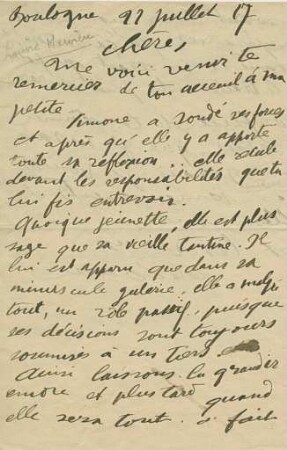 Boulogne 22 juillet 17
chères,
Me voici venir te
remercier de ton acceuil à ma
petite
Simone a sondé ses forces
et après qu'elle y a apporté
toute sa réflexion... elle recule
devant les responsabilités que tu
lui fis entrevoir.
Quoique jeunette, elle est plus
sage que sa vieille tantine. Il
lui est apparu que dans sa
minuscule galerie, elle a malgré
tout, un rôle passif, puisque
ses décisions sont toujours
soumises à un tiers
Ainsi laissons la grandir
encore et plus tard quand
elle sera tout à fait